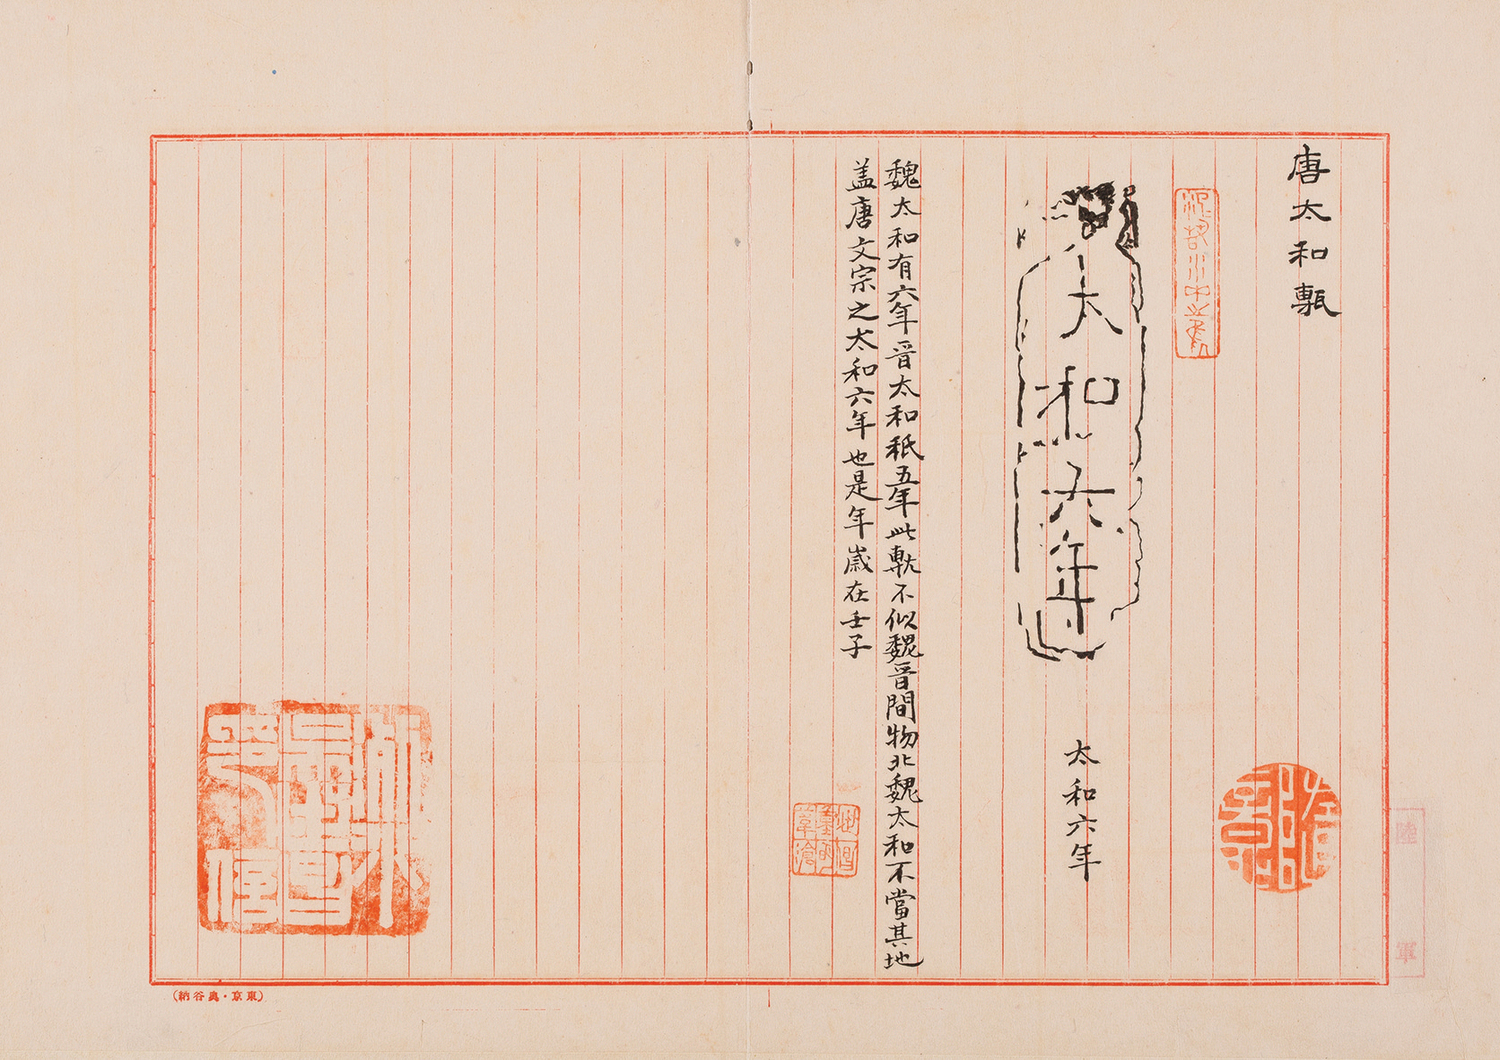 唐太和甎
太和六年
太和六年
魏太和有六年晋太和秖五年此甎不似魏晋間物北魏太和不當其地
盖唐文宗之太和六年也是年歲在壬子
陸軍
(東京・奥谷納)